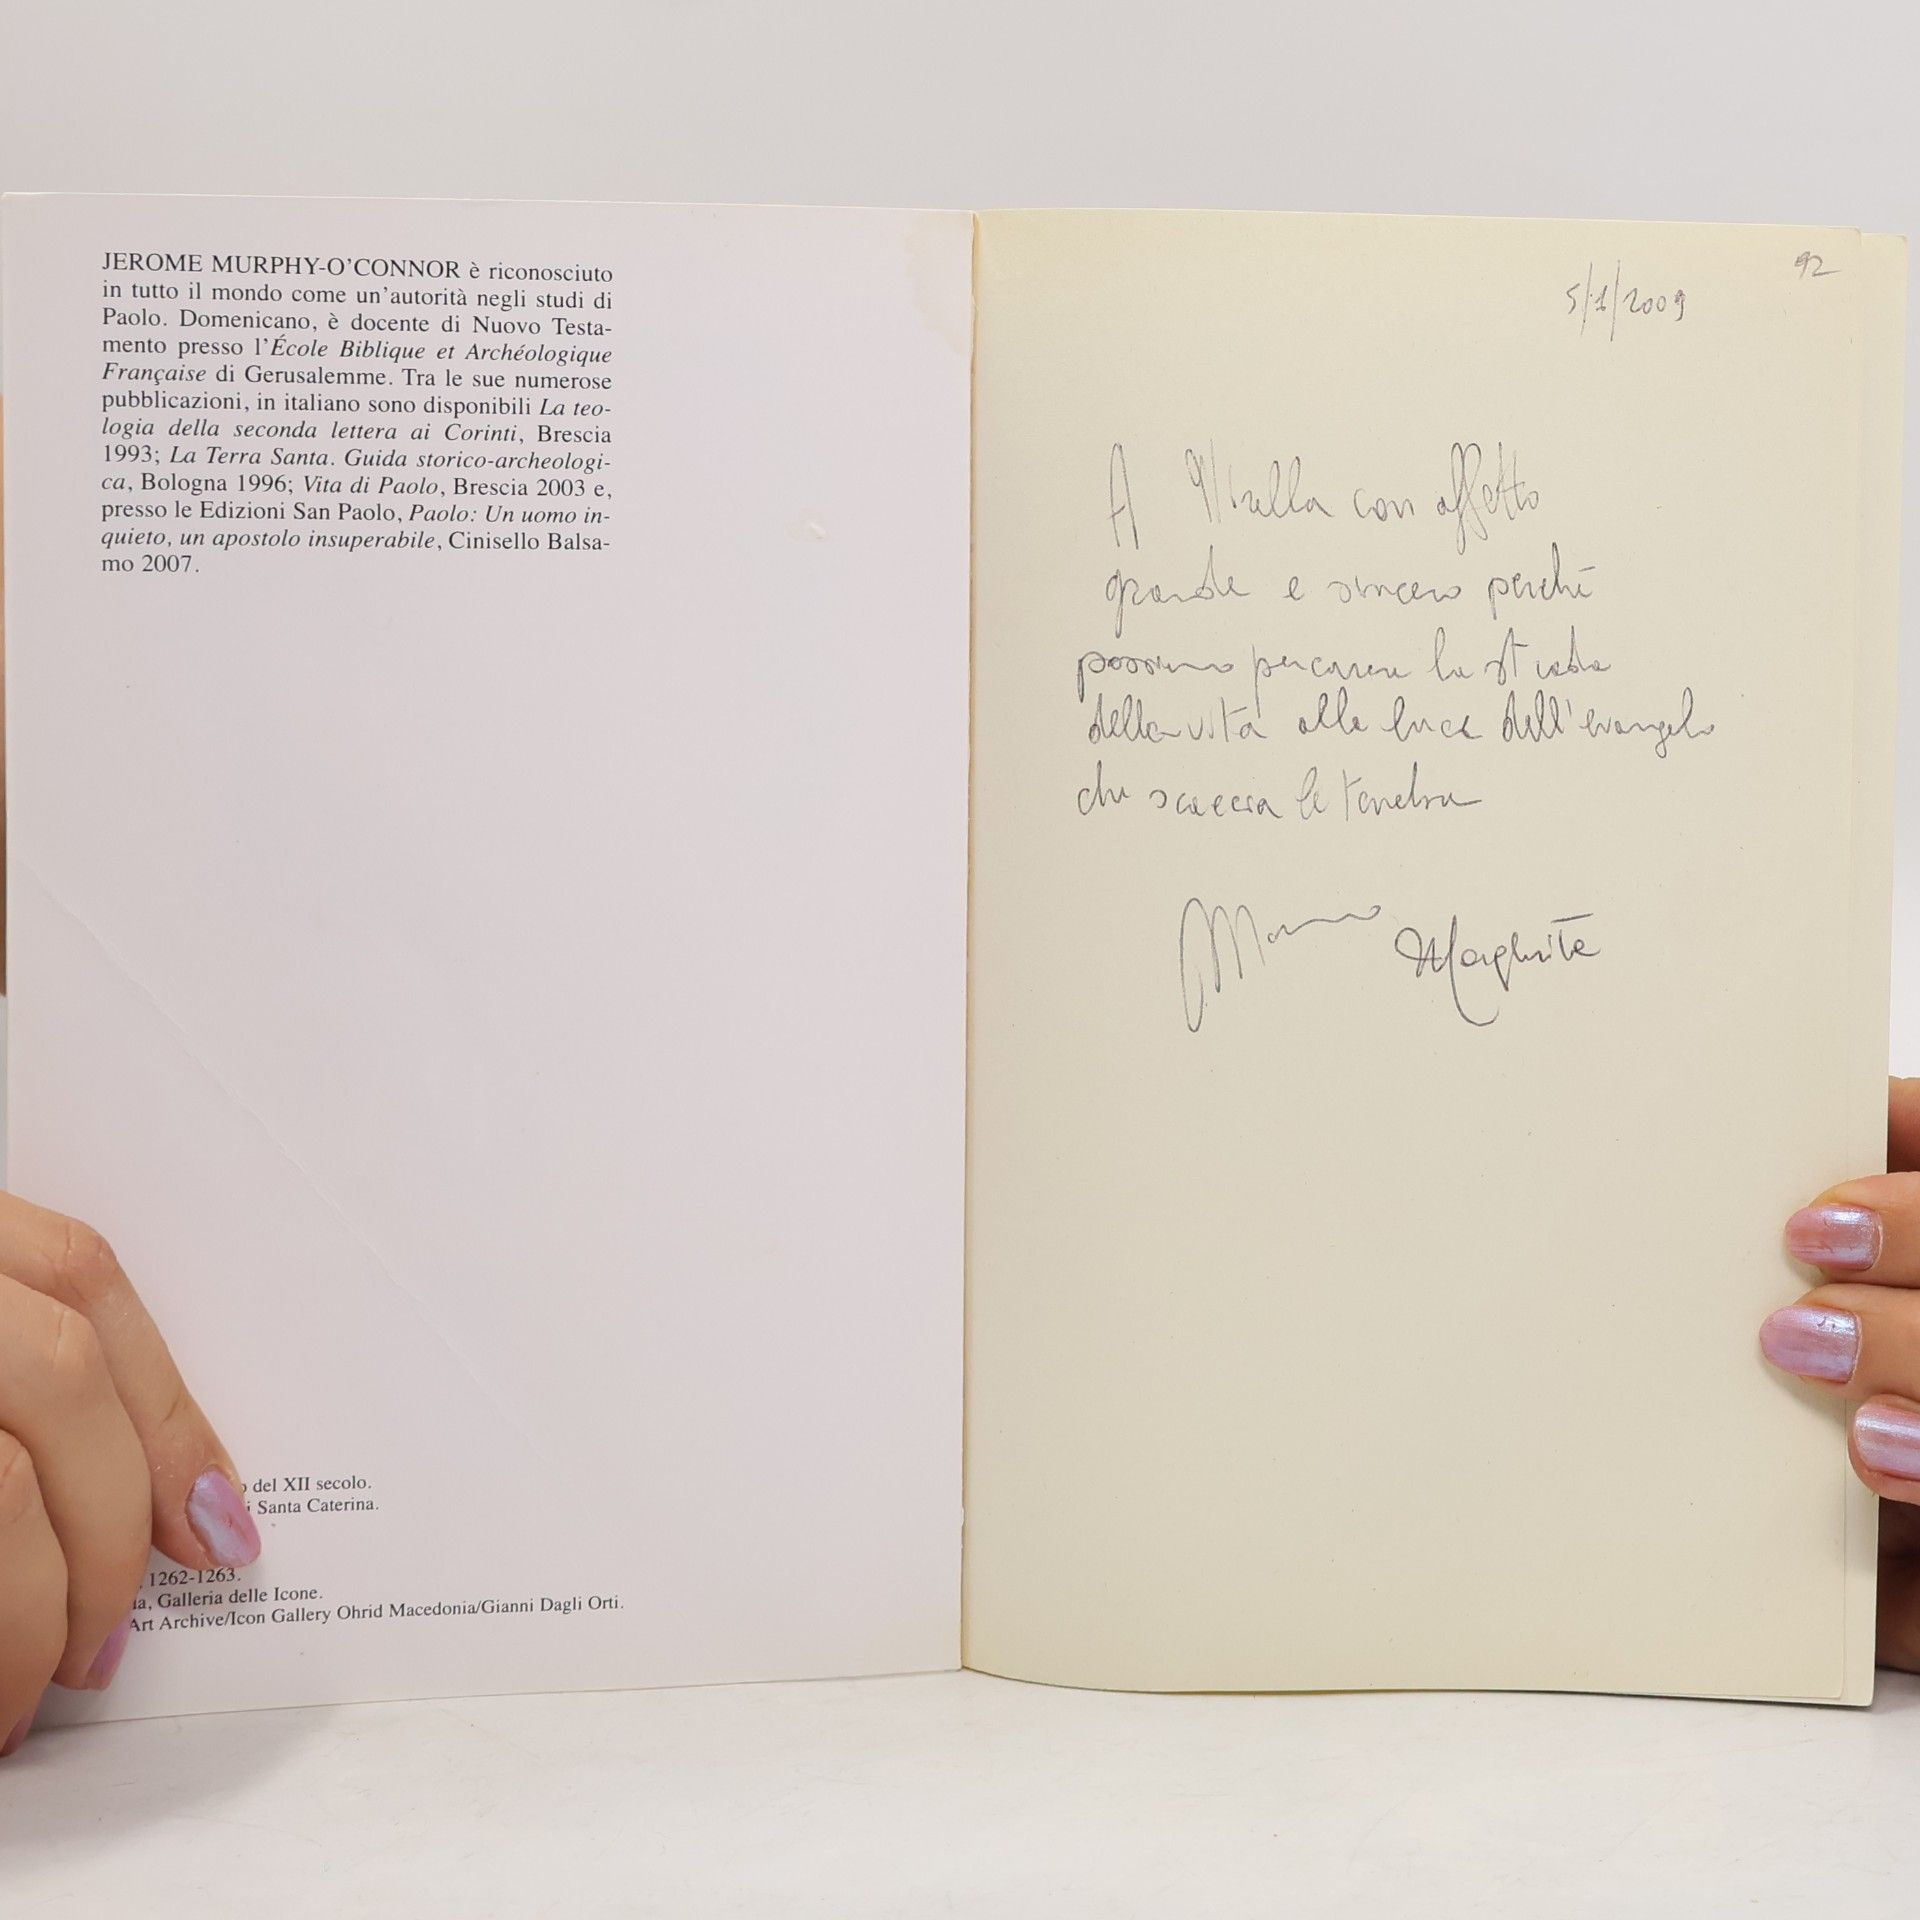 JEROME MURPHY-O'CONNOR è riconosciuto
in tutto il mondo come un'autorità negli studi di
Paolo. Domenicano, è docente di Nuovo Testa-
mento presso l'École Biblique et Archéologique
Française di Gerusalemme. Tra le sue numerose
pubblicazioni, in italiano sono disponibili La teo-
logia della seconda lettera ai Corinti, Brescia
1993; La Terra Santa. Guida storico-archeologi-
ca, Bologna 1996; Vita di Paolo, Brescia 2003 e,
presso le Edizioni San Paolo, Paolo: Un uomo in-
quieto, un apostolo insuperabile, Cinisello Balsa-
mo 2007.
del XII secolo.
Santa Caterina.
1262-1263.
Galleria delle Icone.
Art Archive/Icon Gallery Ohrid Macedonia/Gianni Dagli Orti.
92
5/1/2009
A Mirella con affetto
grande e sincero perché
possiamo percorrere la strada
della vita alla luce dell'evangelo
che scaccia le tenebre
Margherita